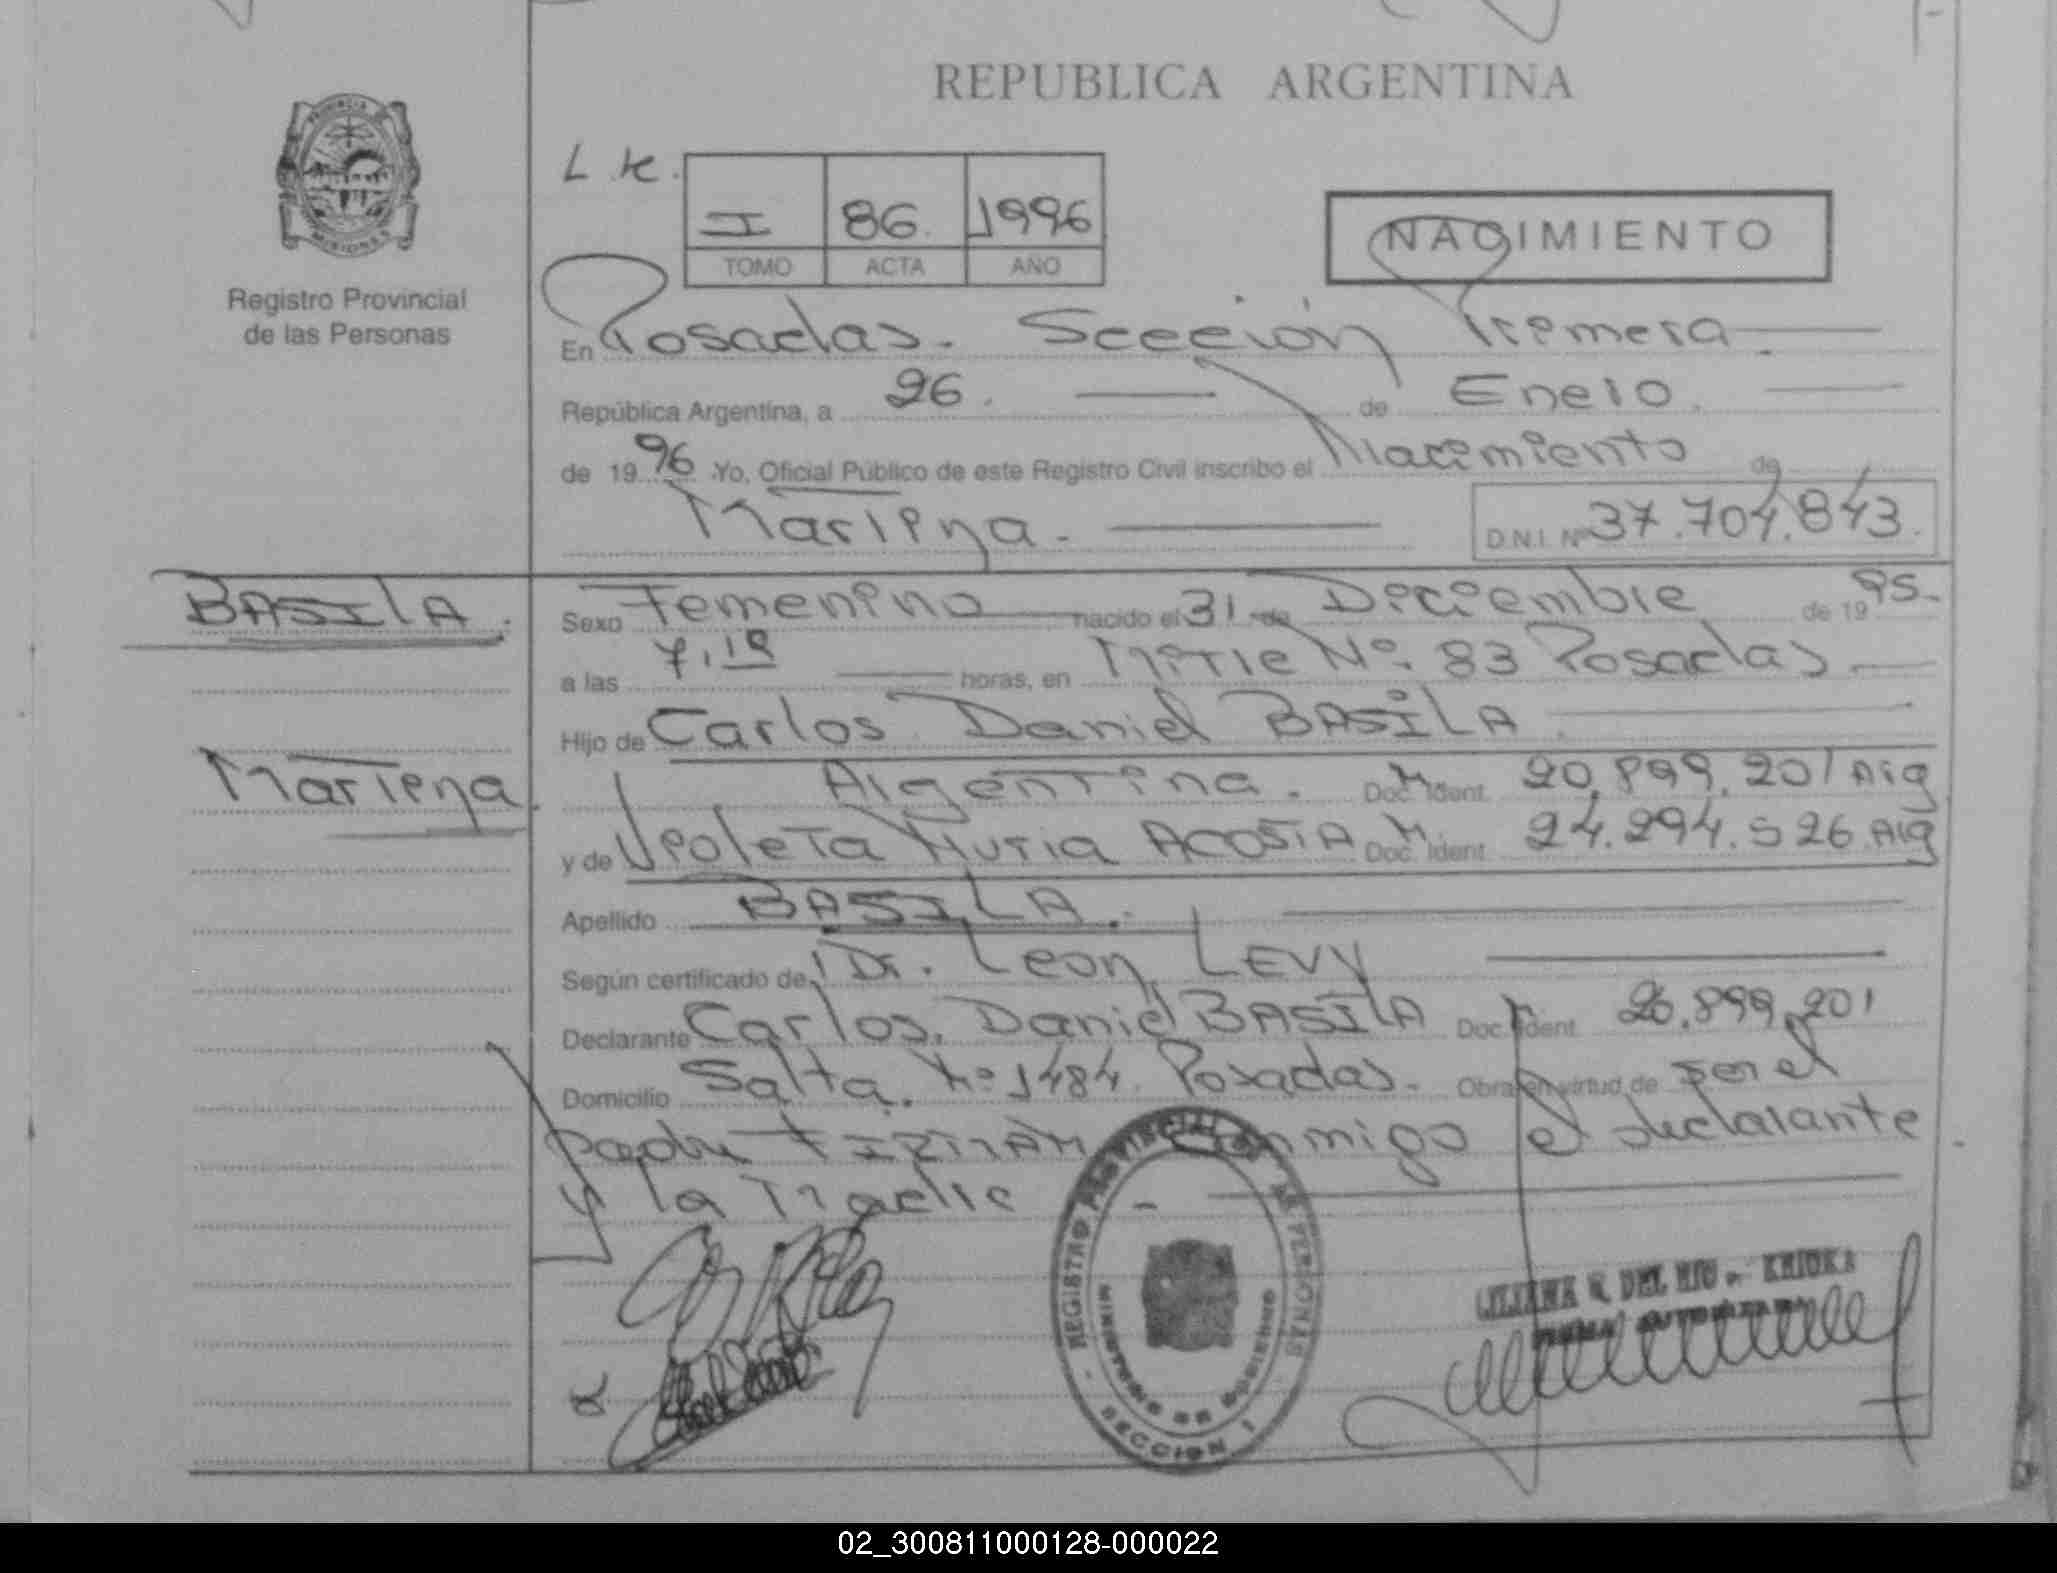 REPUBLICA ARGENTINA
PROVINCIA
MISIONES
Registro Provincial
de las Personas
L. K.
I 86. 1996
TOMO ACTA AÑO
NACIMIENTO
En Posadas. Sección Primera
República Argentina, a 26. de Enero.
de 1996 .Yo, Oficial Público de este Registro Civil inscribo el Nacimiento de
Mariena. D.N.I. Nº 37.704.843.
BASILA.
Sexo Femenino nacido el 31 de Diciembre de 1995.
a las 7,10 horas, en Mitre Nº. 83 Posadas.
Hijo de Carlos Daniel BASILA.
Mariena.
Argentina. Doc. Ident. 20.899.201 Arg
y de Violeta Nuria ACOSTA Doc. Ident. 24.294.526 Arg
Apellido BASILA.
Según certificado de Dr. Leon LEVY
Declarante Carlos. Daniel BASILA Doc. Ident. 20.899.201
Domicilio Salta. Nº 1484 Posadas. Obra en virtud de ser el
padre FIRMAN Conmigo el declarante
y la Madre
REGISTRO PROVINCIAL DE PERSONAS
MINISTERIO DE GOBIERNO
SECCION 1
DEL RIO
02_300811000128-000022